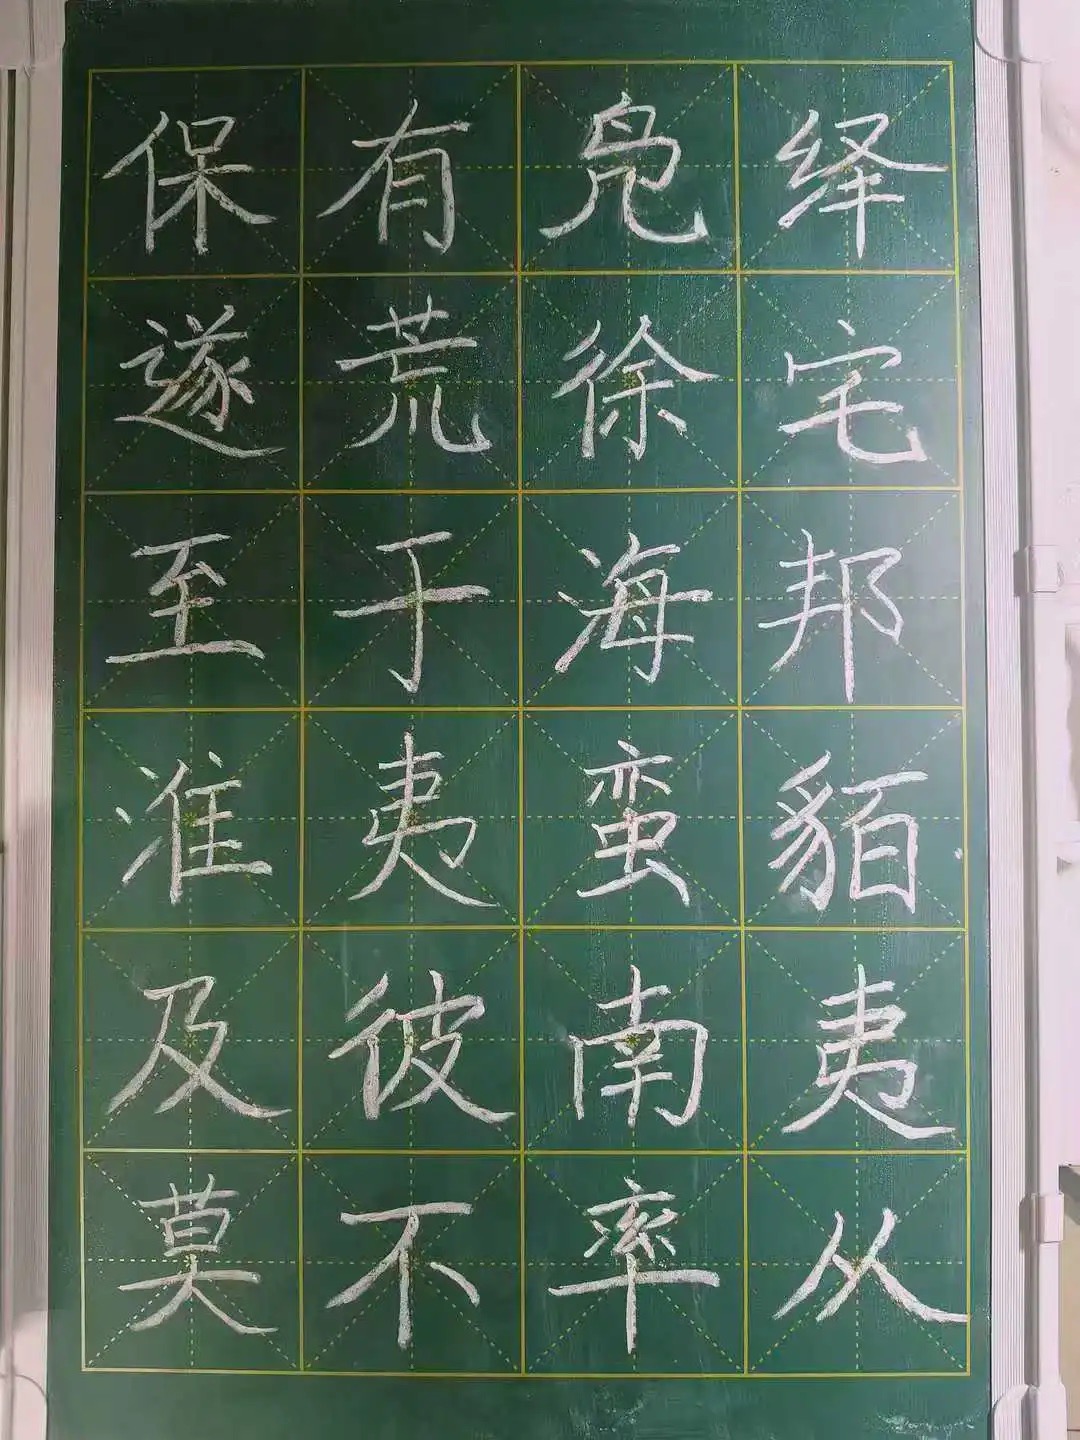 保有凫绎
遂荒徐宅
至于海邦
淮夷蛮貊
及彼南夷
莫不率从